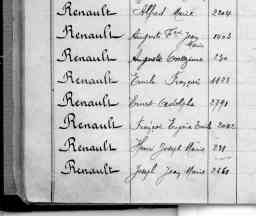 Renault Alfred Marie 2204
Renault Auguste Fcd Jean
Marie
Renault Auguste 230
Renault Emile François 1823
Renault Ernest 2791
Renault François Eugène Emile
Renault Henri Joseph Marie 231
Renault Joseph Jean Marie